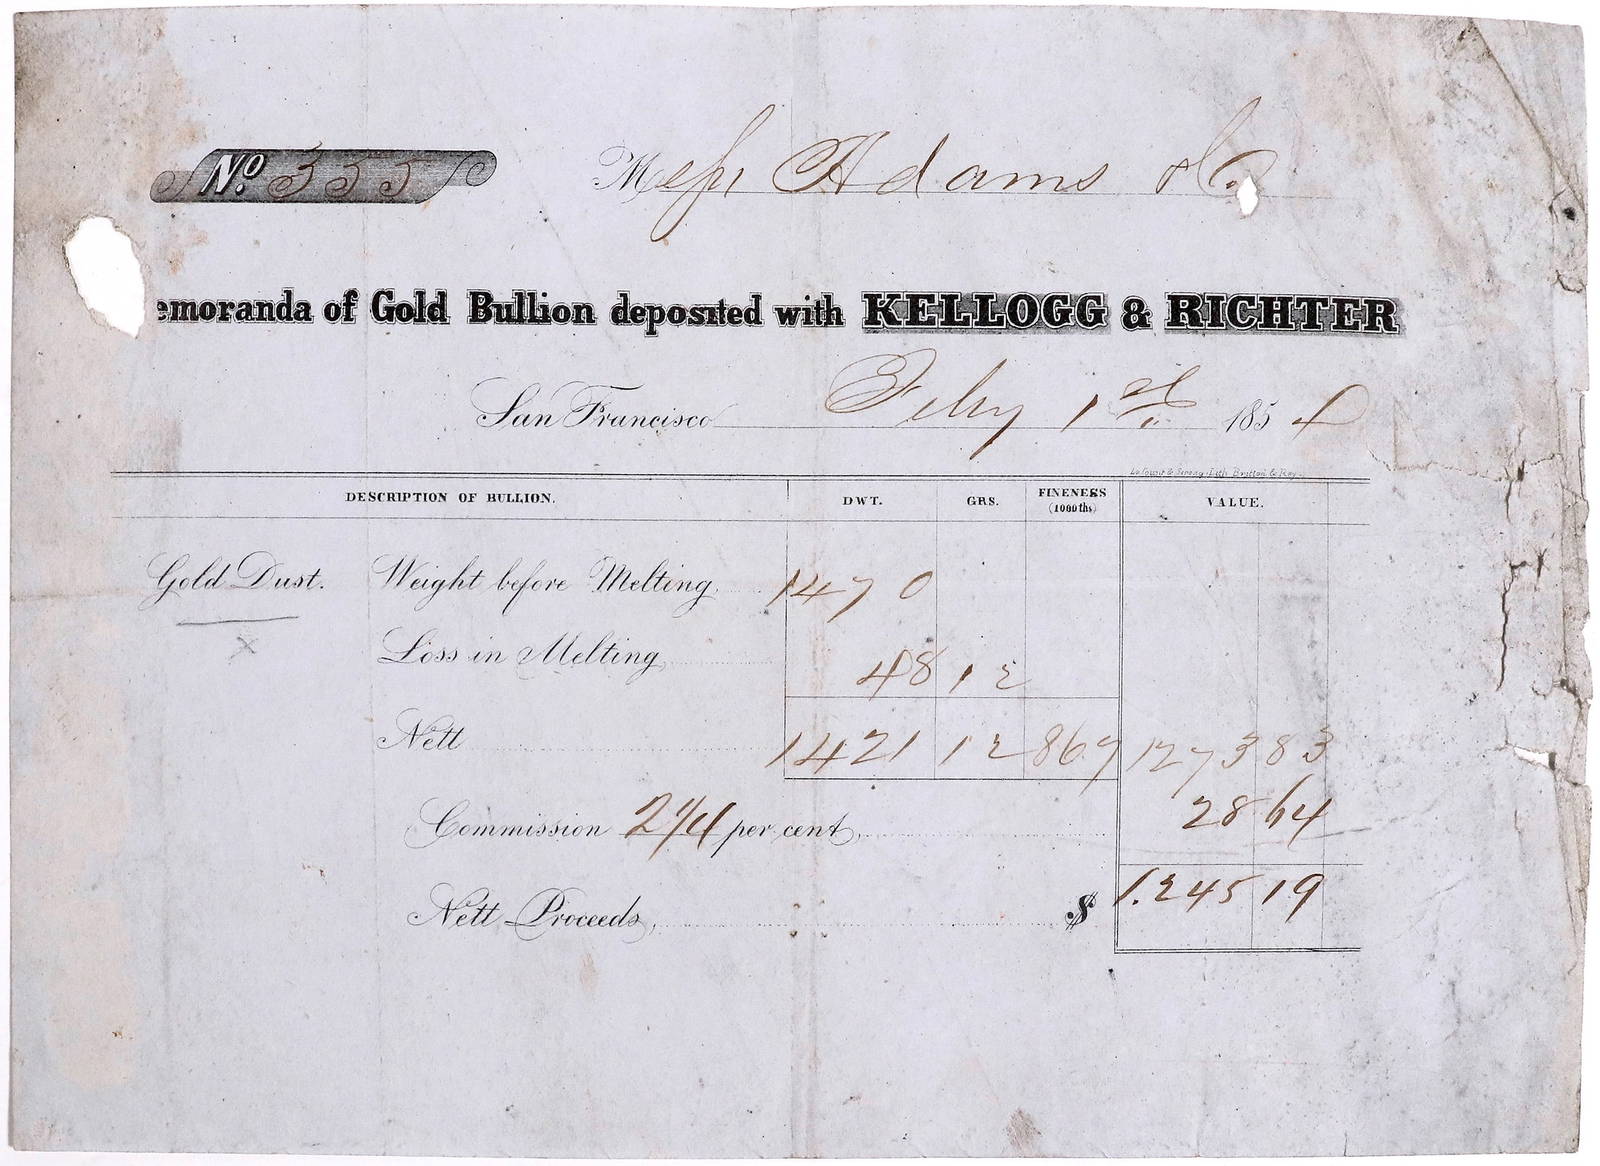 No. 355 Messrs Adams & Co.
emoranda of Gold Bullion deposited with KELLOGG & RICHTER
San Francisco Feby 1st 1854
Le Count & Strong. Lith Britton & Rey
DESCRIPTION OF BULLION. DWT. GRS. FINENESS (1000ths) VALUE.
Gold Dust. Weight before Melting 1470
Loss in Melting 48 12
Nett 1421 12 867 1273 83
Commission 2 1/4 per cent, 28 64
Nett Proceeds, $ 1.245 19